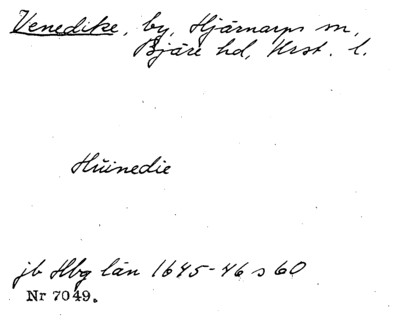 Venedike, by, Hjärnarps sn,
Bjäre hd, Krst. l.
Huinedie
jb Hbg län 1645-46 s 60
Nr 7049.